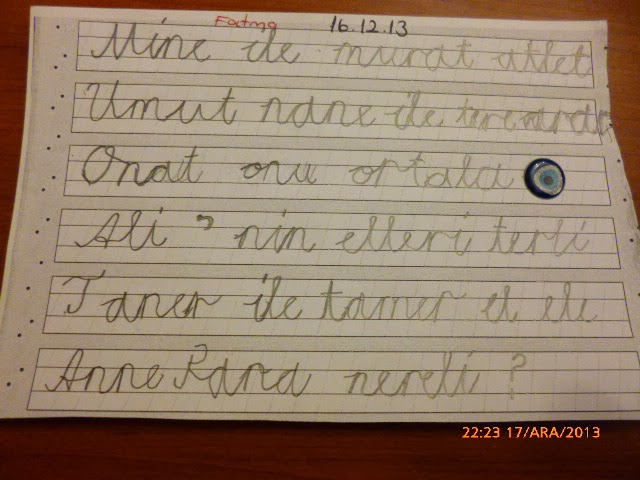 Fatma 16.12.13
Mine ile murat atlet
Umut nane ile tere arada
Onat onu ortala
Ali 'nin elleri terli
Taner ile tamer el ele
Anne Rana nereli ?
22:23 17/ARA/2013